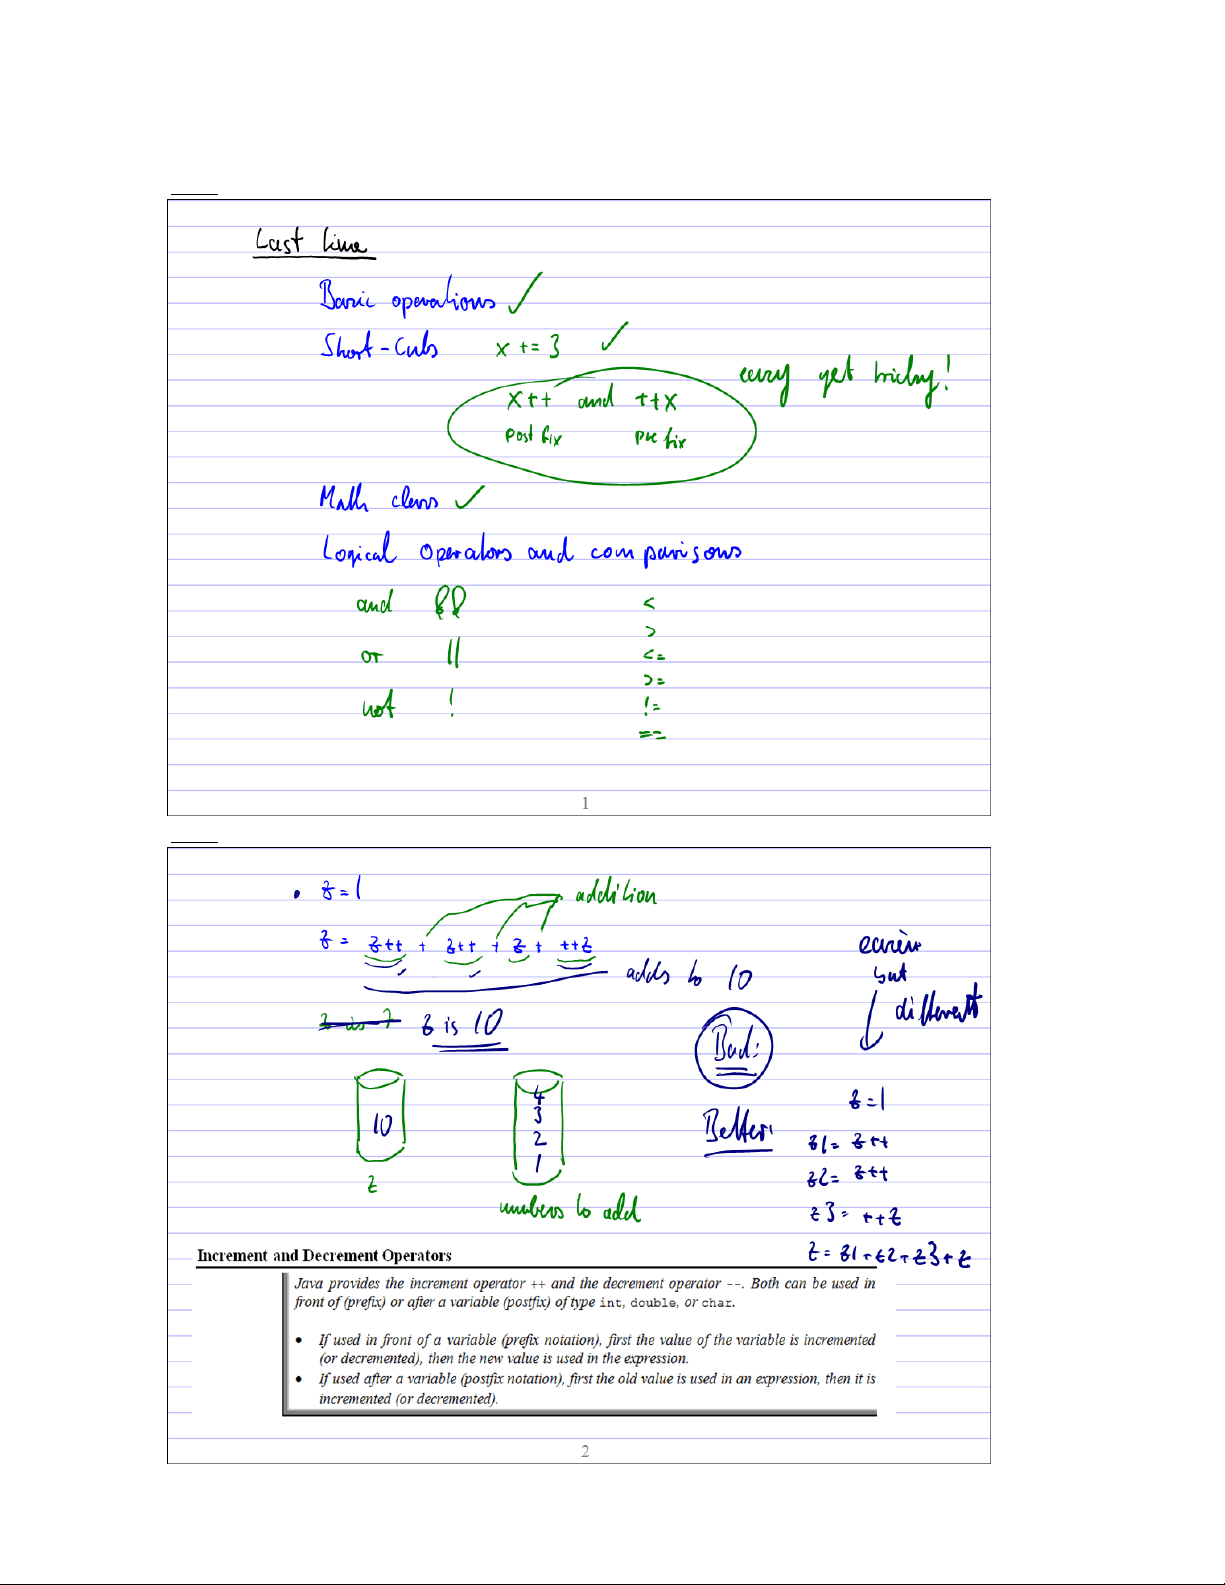 Last time
Basic operations ✓
Short-Cuts x += 3 ✓
easy yet tricky!
x++ and ++x
postfix prefix
Math class ✓
Logical operators and comparisons
and && <
>
or || <=
>=
not ! !=
==
1
• z = 1
addition
z = z++ + z++ + z + ++z
adds to 10
easier
but
different
z is 7 z is 10
Bad:
10
4
3
2
1
z
numbers to add
Better:
z = 1
z1 = z++
z2 = z++
z3 = ++z
z = z1 + z2 + z3 + z
Increment and Decrement Operators
Java provides the increment operator ++ and the decrement operator --. Both can be used in
front of (prefix) or after a variable (postfix) of type int, double, or char.
• If used in front of a variable (prefix notation), first the value of the variable is incremented
(or decremented), then the new value is used in the expression.
• If used after a variable (postfix notation), first the old value is used in an expression, then it is
incremented (or decremented).
2